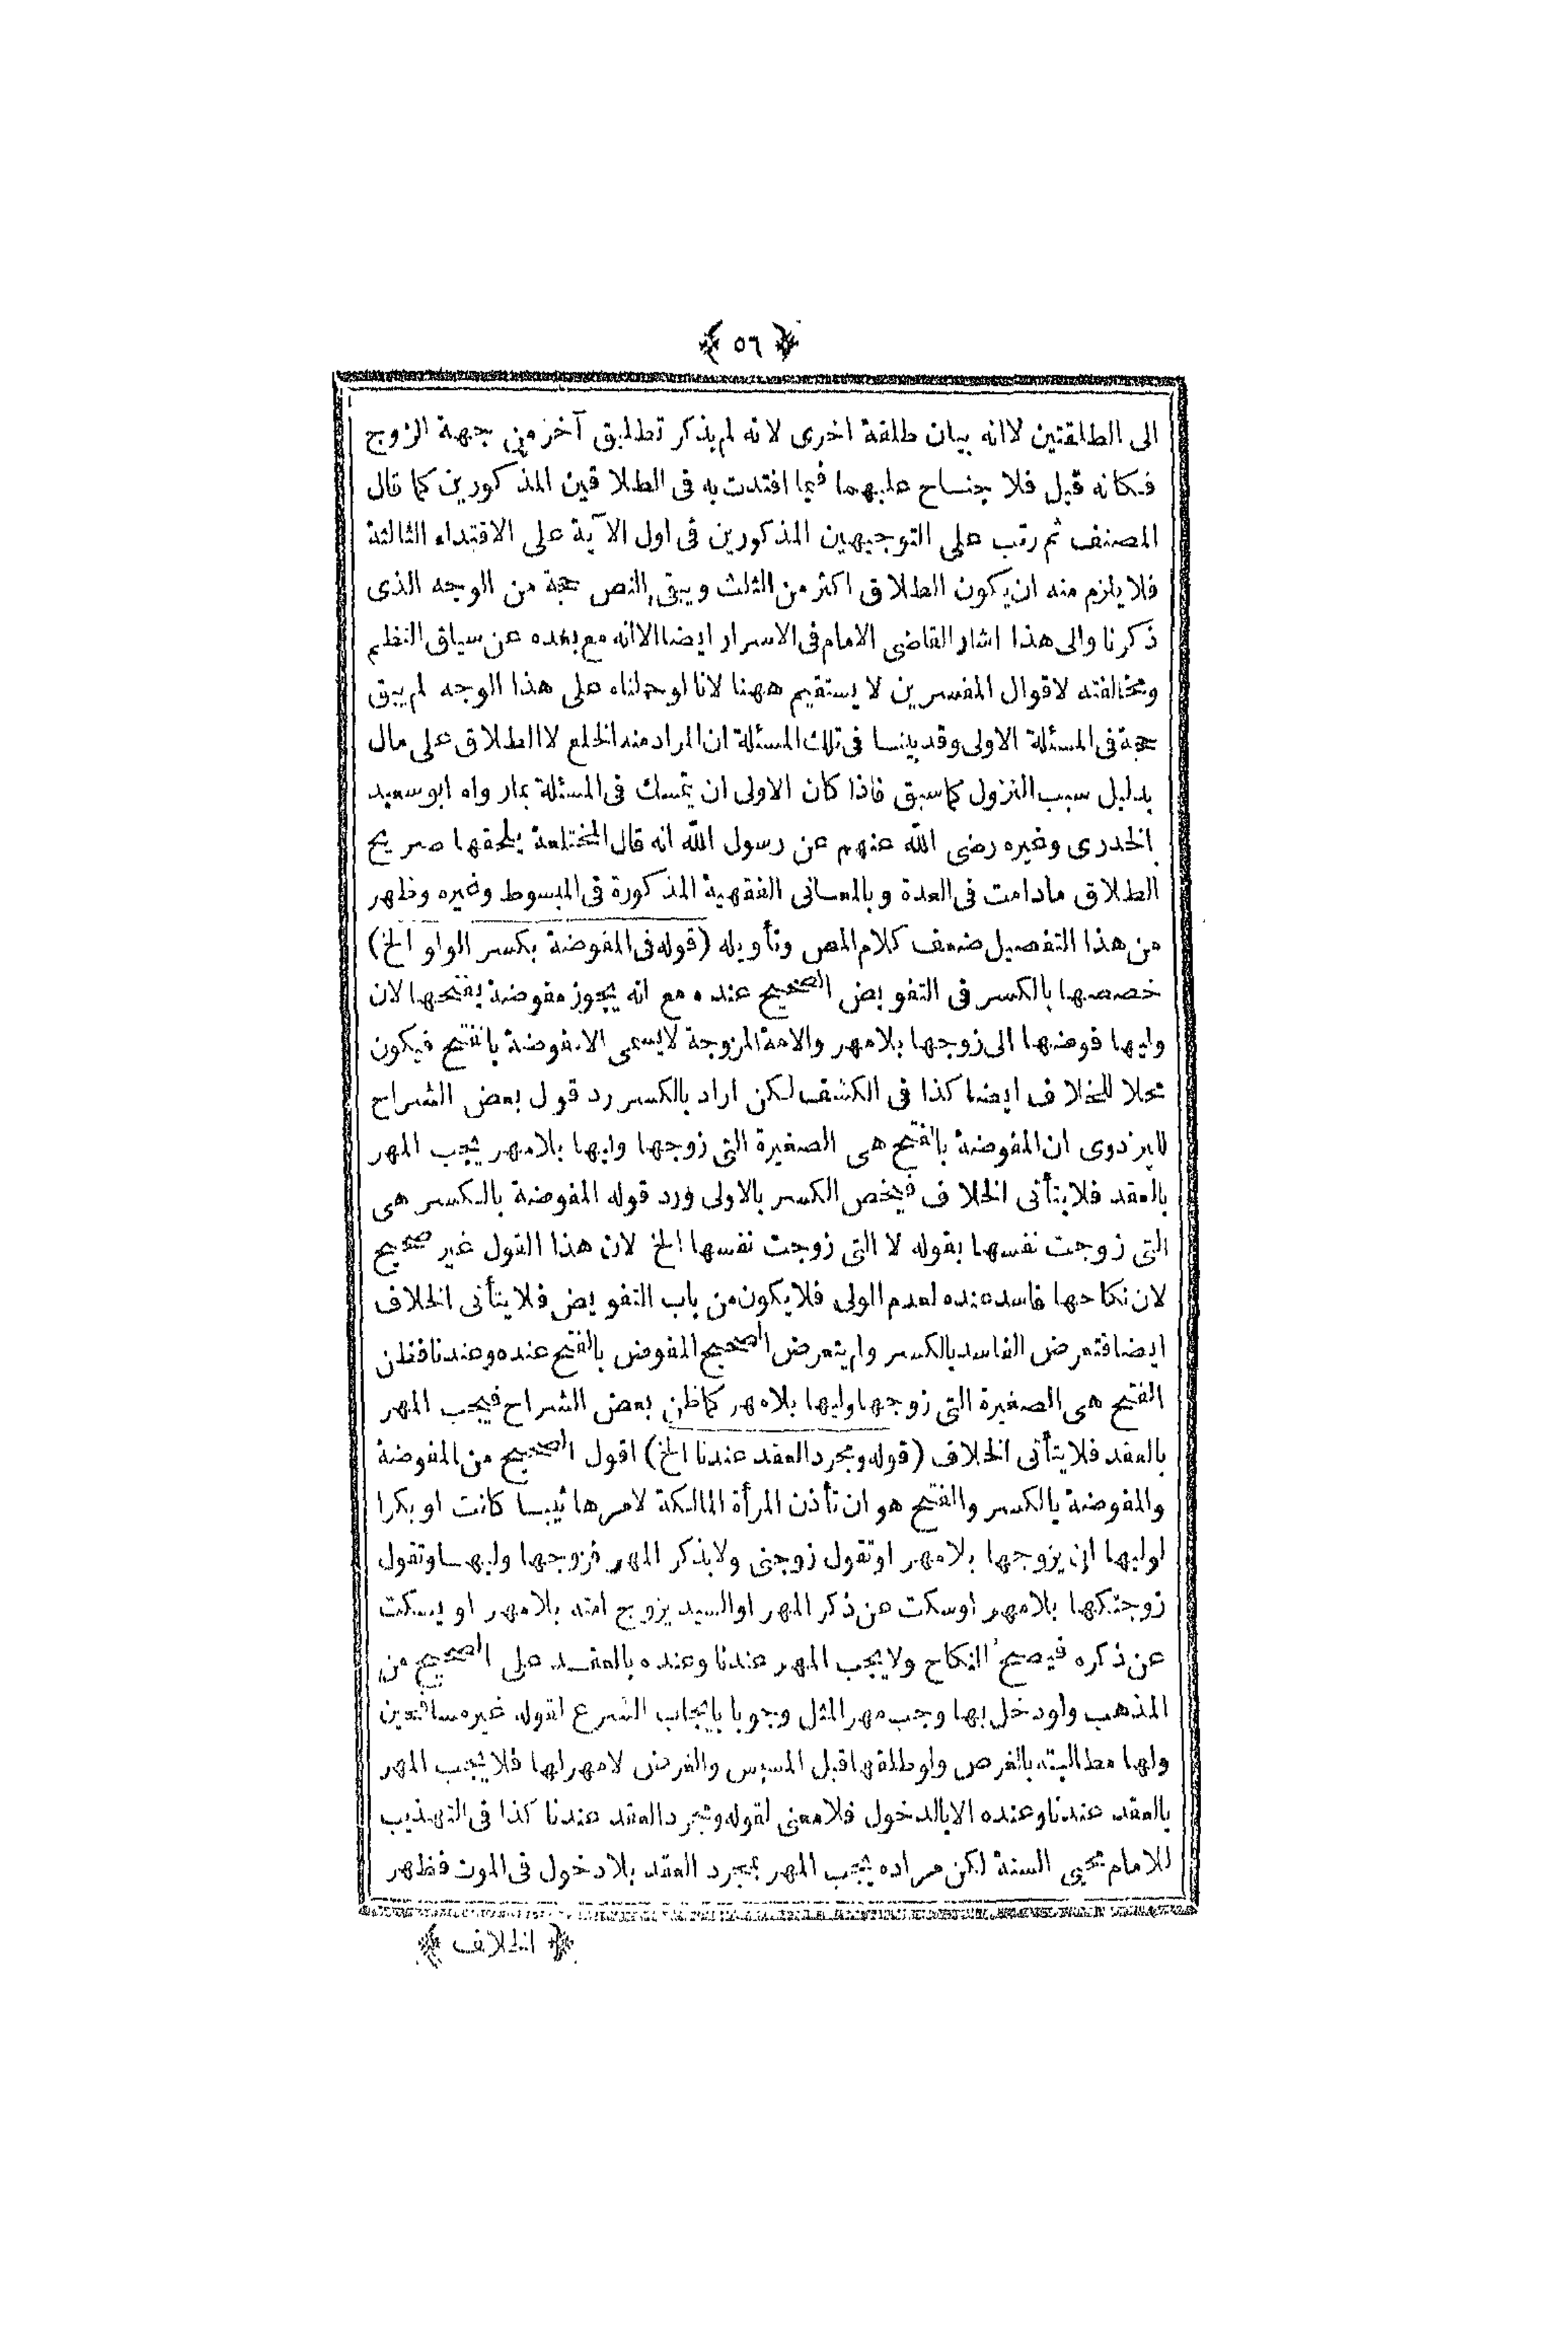 ﴿ ٥٦ ﴾
الى الطلقتين لاانه بيان طلقة اخرى لانه لم يذكر تطليق آخر من جهة الزوج
فكانه قيل فلا جناح عليهما فيما افتدت به فى الطلاقين المذكورين كما قال
المصنف ثم رتب على التوجيهين المذكورين فى اول الآية على الافتداء الثالثة
فلا يلزم منه ان يكون الطلاق اكثر من الثلث ويبقى النص حجة من الوجه الذى
ذكرنا والى هذا اشار القاضى الامام فى الاسرار ايضا الاانه مع بعده عن سياق النظم
ومخالفته لاقوال المفسرين لا يستقيم ههنا لانا لوحملناه على هذا الوجه لم يبق
حجة فى المسئلة الاولى وقد بينا فى تلك المسئلة ان المراد منه الخلع لا الطلاق على مال
بدليل سبب النزول كما سبق فاذا كان الاولى ان يتمسك فى المسئلة بمارواه ابو سعيد
الخدرى وغيره رضى الله عنهم عن رسول الله انه قال المختلعة يلحقها صريح
الطلاق مادامت فى العدة وبالمعانى الفقهية المذكورة فى المبسوط وغيره وظهر
من هذا التفصيل ضعف كلام المص وتأويله (قوله فى المفوضة بكسر الواو الخ)
خصصها بالكسر فى التفويض الصحيح عنده مع انه يجوز مفوضة بفتحها لان
وليها فوضها الى زوجها بلامهر والامة المزوجة لايسمى الامفوضة بالفتح فيكون
محلا للخلاف ايضا كذا فى الكشف لكن اراد بالكسر رد قول بعض الشراح
للبزدوى ان المفوضة بالفتح هى الصغيرة التى زوجها وليها بلامهر يجب المهر
بالعقد فلايتأتى الخلاف فيخص الكسر بالاولى ورد قوله المفوضة بالكسر هى
التى زوجت نفسها بقوله لا التى زوجت نفسها الخ لان هذا القول غير صحيح
لان نكاحها فاسد عنده لعدم الولى فلايكون من باب التفويض فلايتأتى الخلاف
ايضا فتعرض الفاسد بالكسر ولم يتعرض الصحيح المفوض بالفتح عنده وعندنا فظن
الفتح هى الصغيرة التى زوجها وليها بلامهر كماظن بعض الشراح فيجب المهر
بالعقد فلايتأتى الخلاف (قوله ومجرد العقد عندنا الخ) اقول الصحيح من المفوضة
والمفوضة بالكسر والفتح هو ان تأذن المرأة المالكة لامرها ثيبا كانت او بكرا
لوليها ان يزوجها بلامهر اوتقول زوجنى ولايذكر المهر فزوجها وليها وتقول
زوجتكها بلامهر اوسكت عن ذكر المهر اوالسيد يزوج امته بلامهر او يسكت
عن ذكره فيصح النكاح ولايجب المهر عندنا وعنده بالعقد على الصحيح من
المذهب ولودخل بها وجب مهر المثل وجوبا بايجاب الشرع لقوله غير مسافحين
ولها مطالبته بالفرض ولوطلقها قبل المسيس والفرض لامهر لها فلايجب المهر
بالعقد عندنا وعنده الابالدخول فلامعنى لقوله ومجرد العقد عندنا كذا فى التهذيب
للامام محيى السنة لكن مراده يجب المهر بمجرد العقد بلادخول فى الموت فظهر
﴿ الخلاف ﴾